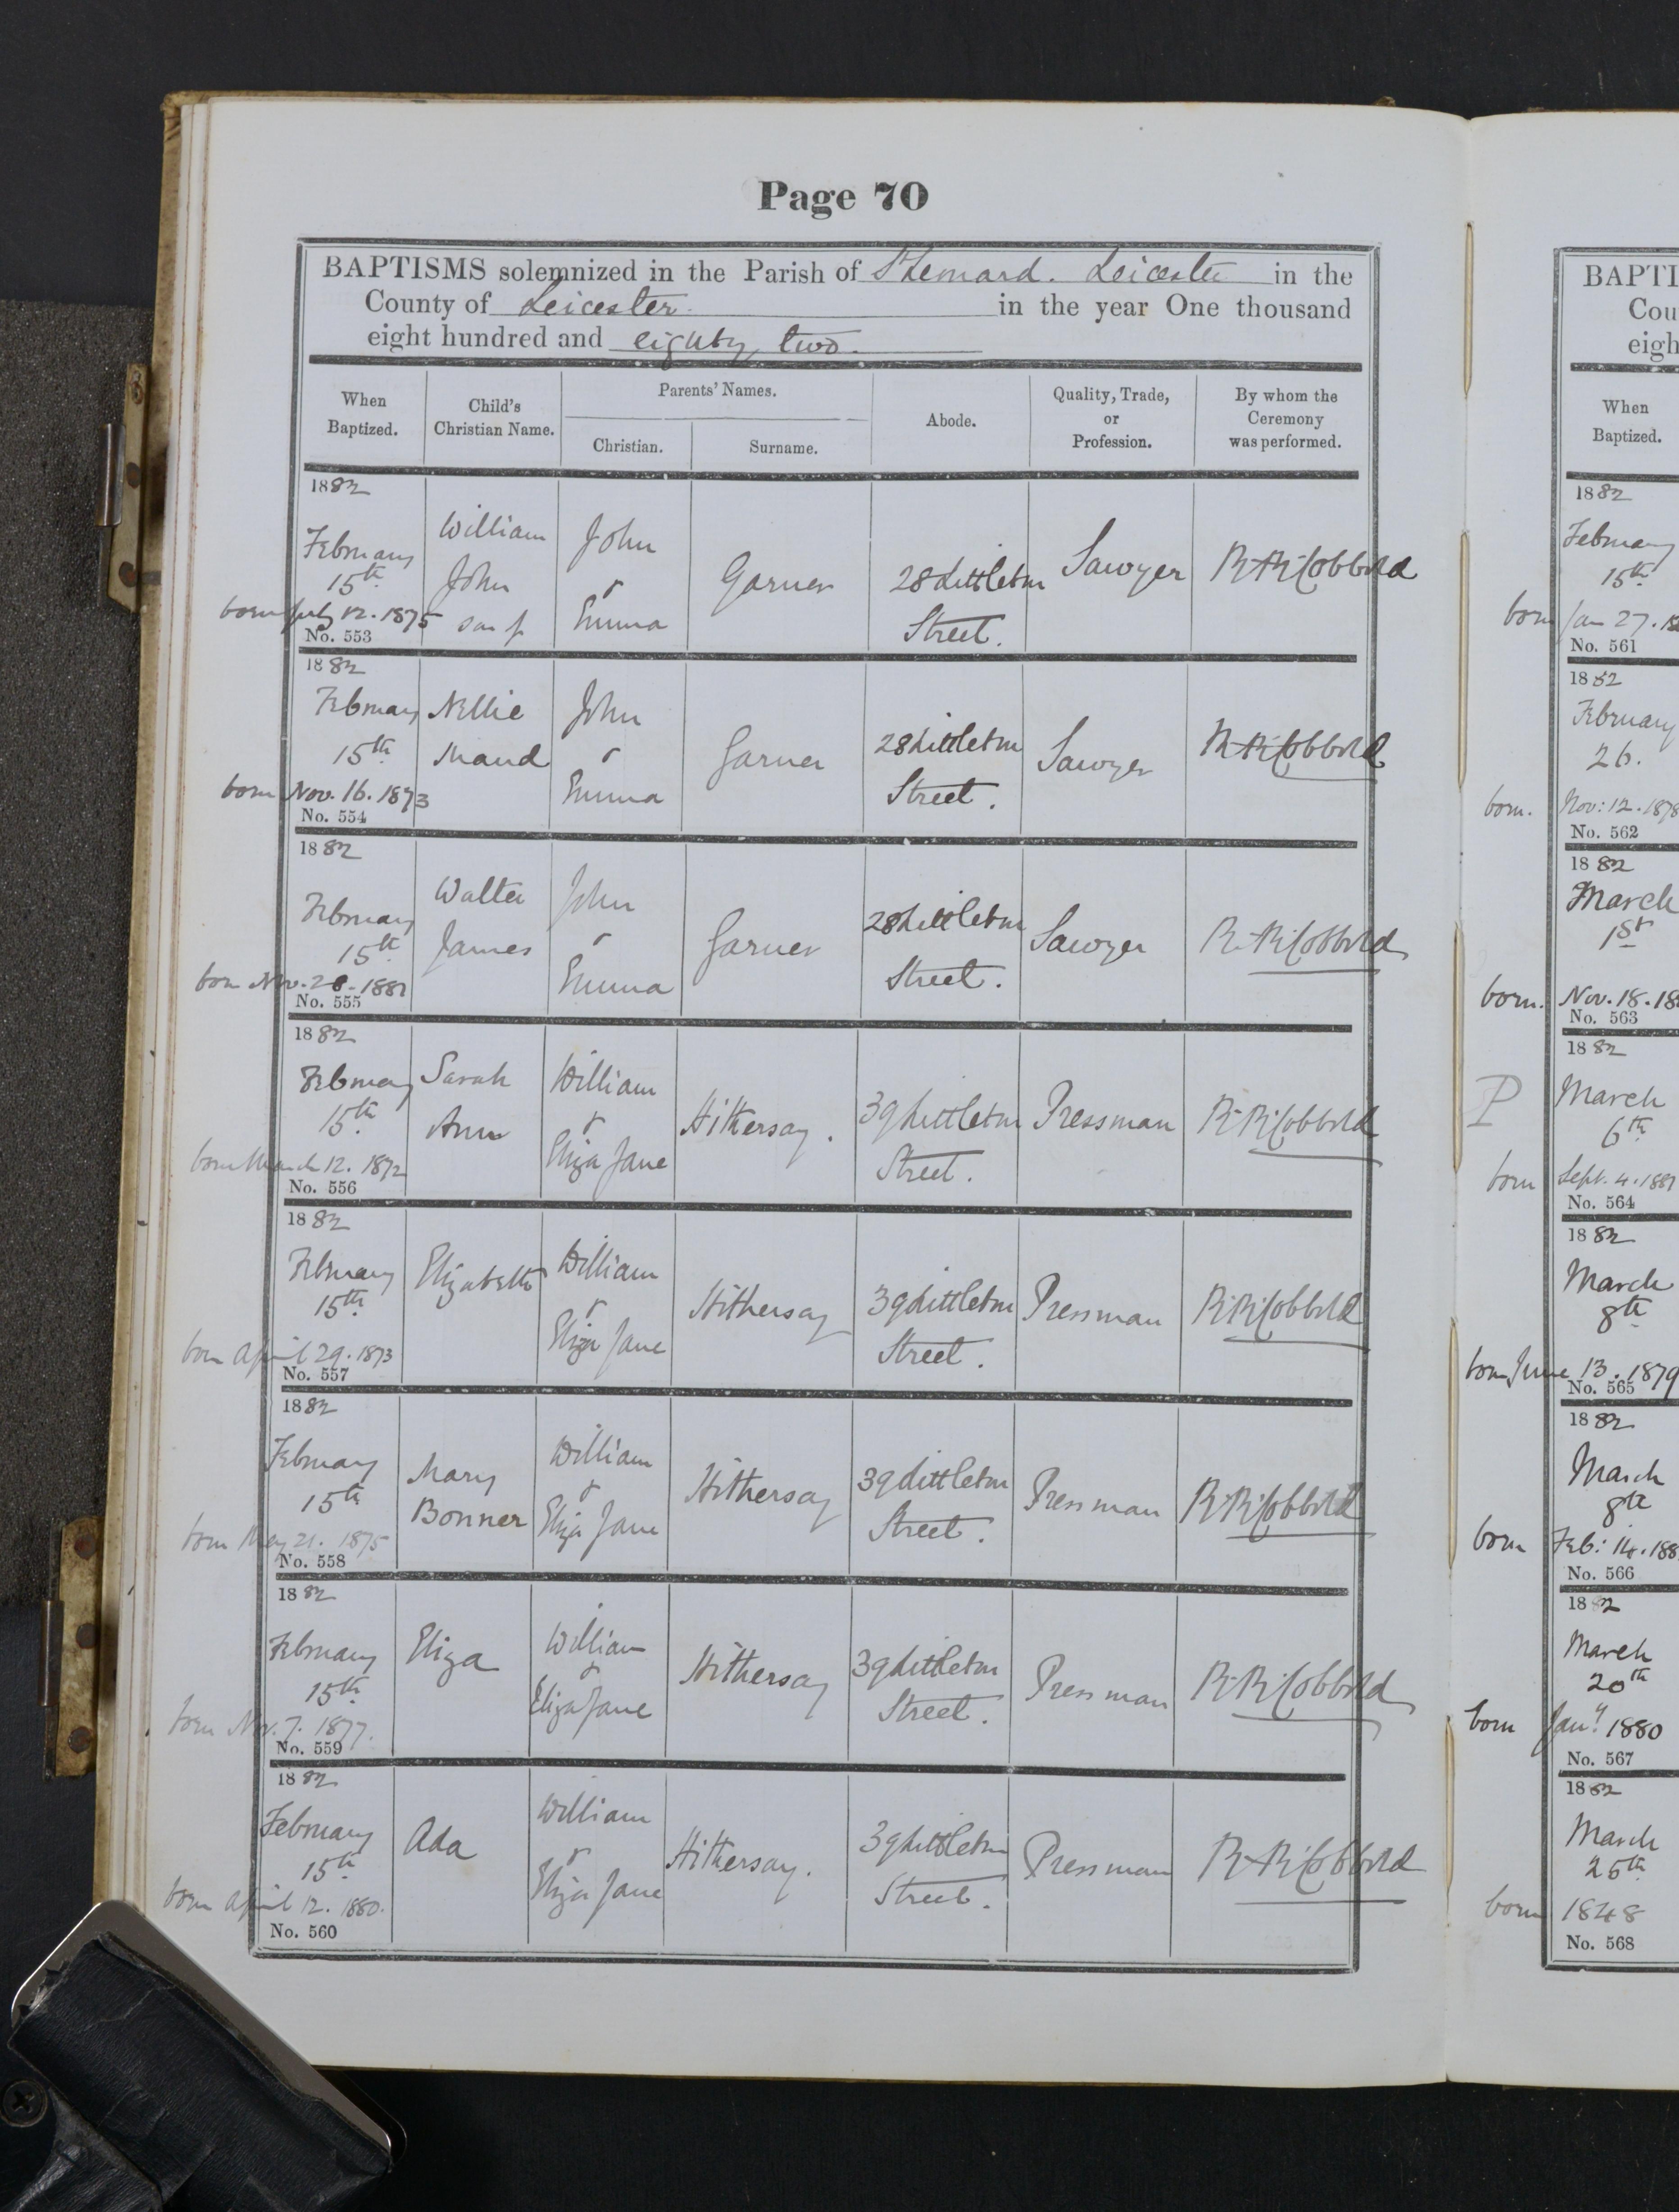 Page 70
BAPTISMS solemnized in the Parish of St Leonard. Leicester in the
County of Leicester. in the year One thousand
eight hundred and eighty two.
When Baptized.
Child's Christian Name.
Parents' Names.
Christian.
Surname.
Abode.
Quality, Trade, or Profession.
By whom the Ceremony was performed.
1882
February 15th
born July 12. 1875
No. 553
William John son of
John & Emma
Garner
28 Littleton Street.
Sawyer
R. R. Cobbold
1882
February 15th
born Nov. 16. 1873
No. 554
Nellie Maud
John & Emma
Garner
28 Littleton Street.
Sawyer
R. R. Cobbold
1882
February 15th
born Nov. 28. 1881
No. 555
Walter James
John & Emma
Garner
28 Littleton Street.
Sawyer
R. R. Cobbold
1882
February 15th
born March 12. 1872
No. 556
Sarah Ann
William & Eliza Jane
Hithersay.
39 Littleton Street.
Pressman
R. R. Cobbold
1882
February 15th
born April 29. 1873
No. 557
Elizabeth
William & Eliza Jane
Hithersay
39 Littleton Street.
Pressman
R. R. Cobbold
1882
February 15th
born May 21. 1875
No. 558
Mary Bonner
William & Eliza Jane
Hithersay
39 Littleton Street.
Pressman
R. R. Cobbold
1882
February 15th
born Nov. 7. 1877.
No. 559
Eliza
William & Eliza Jane
Hithersay
39 Littleton Street.
Pressman
R. R. Cobbold
1882
February 15th
born April 12. 1880.
No. 560
Ada
William & Eliza Jane
Hithersay.
39 Littleton Street.
Pressman
R. R. Cobbold
BAPTI
Cou
eigh
When
Baptized.
1882
February
15th
born Jan 27. 18
No. 561
1882
February
26.
born. Nov: 12. 1878
No. 562
1882
March
1st
born. Nov. 18. 18
No. 563
1882
P
March
6th
born Sept. 4. 1881
No. 564
1882
March
8th
born June 13. 1879
No. 565
1882
March
8th
born Feb: 14. 188
No. 566
1882
March
20th
born Jany. 1880
No. 567
1882
March
25th
born 1848
No. 568